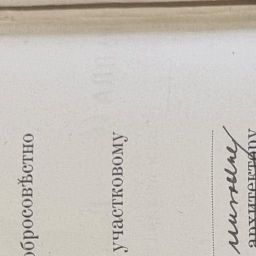 обросовѣстно
участковому
архитектору